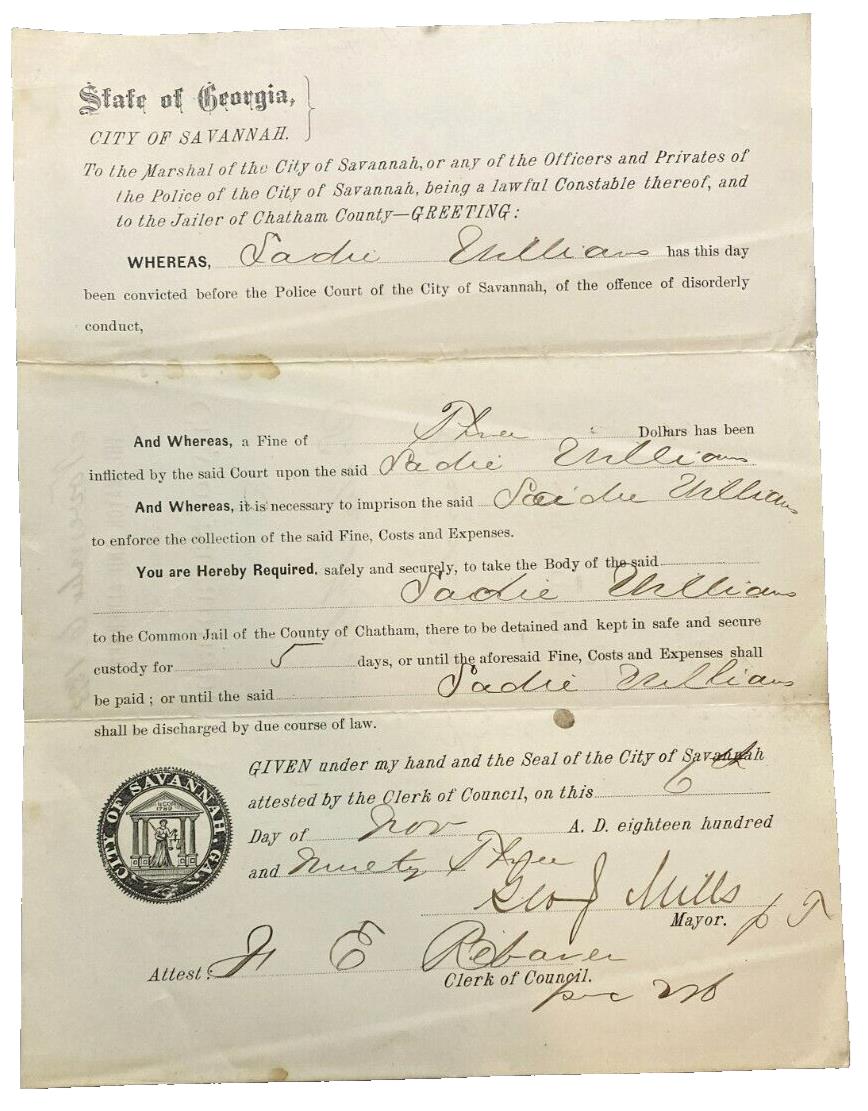 State of Georgia,
CITY OF SAVANNAH.
To the Marshal of the City of Savannah, or any of the Officers and Privates of
the Police of the City of Savannah, being a lawful Constable thereof, and
to the Jailer of Chatham County—GREETING:
WHEREAS, Sadie Williams has this day
been convicted before the Police Court of the City of Savannah, of the offence of disorderly
conduct,
And Whereas, a Fine of Three Dollars has been
inflicted by the said Court upon the said Sadie Williams
And Whereas, it is necessary to imprison the said Saidie Williams
to enforce the collection of the said Fine, Costs and Expenses.
You are Hereby Required, safely and securely, to take the Body of the said
Sadie Williams
to the Common Jail of the County of Chatham, there to be detained and kept in safe and secure
custody for 5 days, or until the aforesaid Fine, Costs and Expenses shall
be paid; or until the said Sadie Williams
shall be discharged by due course of law.
GIVEN under my hand and the Seal of the City of Savannah
attested by the Clerk of Council, on this 6th
Day of Nov A. D. eighteen hundred
and Ninety Three
CITY OF SAVANNAH GA.
1789
Geo J Mills
Mayor. p T
Attest: E Rebarer
Clerk of Council.